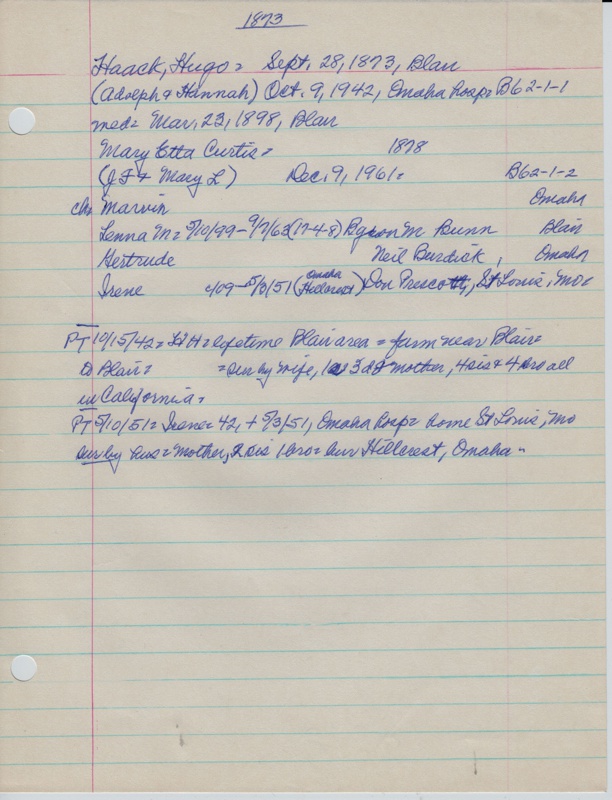 1873
Haack, Hugo = Sept. 28, 1873, Blair
(Adolph & Hannah) Oct. 9, 1942, Omaha hosp = B62-1-1
med = Mar. 23, 1898, Blair
Mary Etta Curtis = 1878
(J F & Mary L) Dec. 9, 1961 = B62-1-2
ch. Marvin Omaha
Lenna M = 5/10/99 - 9/7/63 (17-4-8) Byron M Bunn Blair
Gertrude Neil Burdick, Omaha
Irene 4/09 - 5/3/51 (Omaha Hillcrest) Don Prescott, St Louis, Mo =
PT 10/15/42 = HH = lifetime Blair area = farm near Blair =
Blair = = sur by wife, 1 s 3 d & mother, 4 sis & 4 bro all
in California =
PT 5/10/51 = Irene = 42, + 5/3/51, Omaha hosp = home St Louis, Mo
sur by hus = mother, 2 sis 1 bro = bur Hillcrest, Omaha -